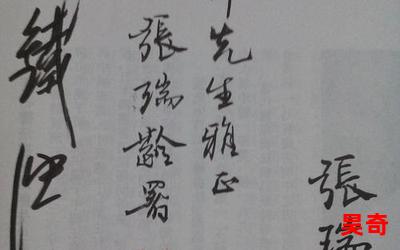 張瑞
先生雅正
張瑞齡署
鐵
昊奇